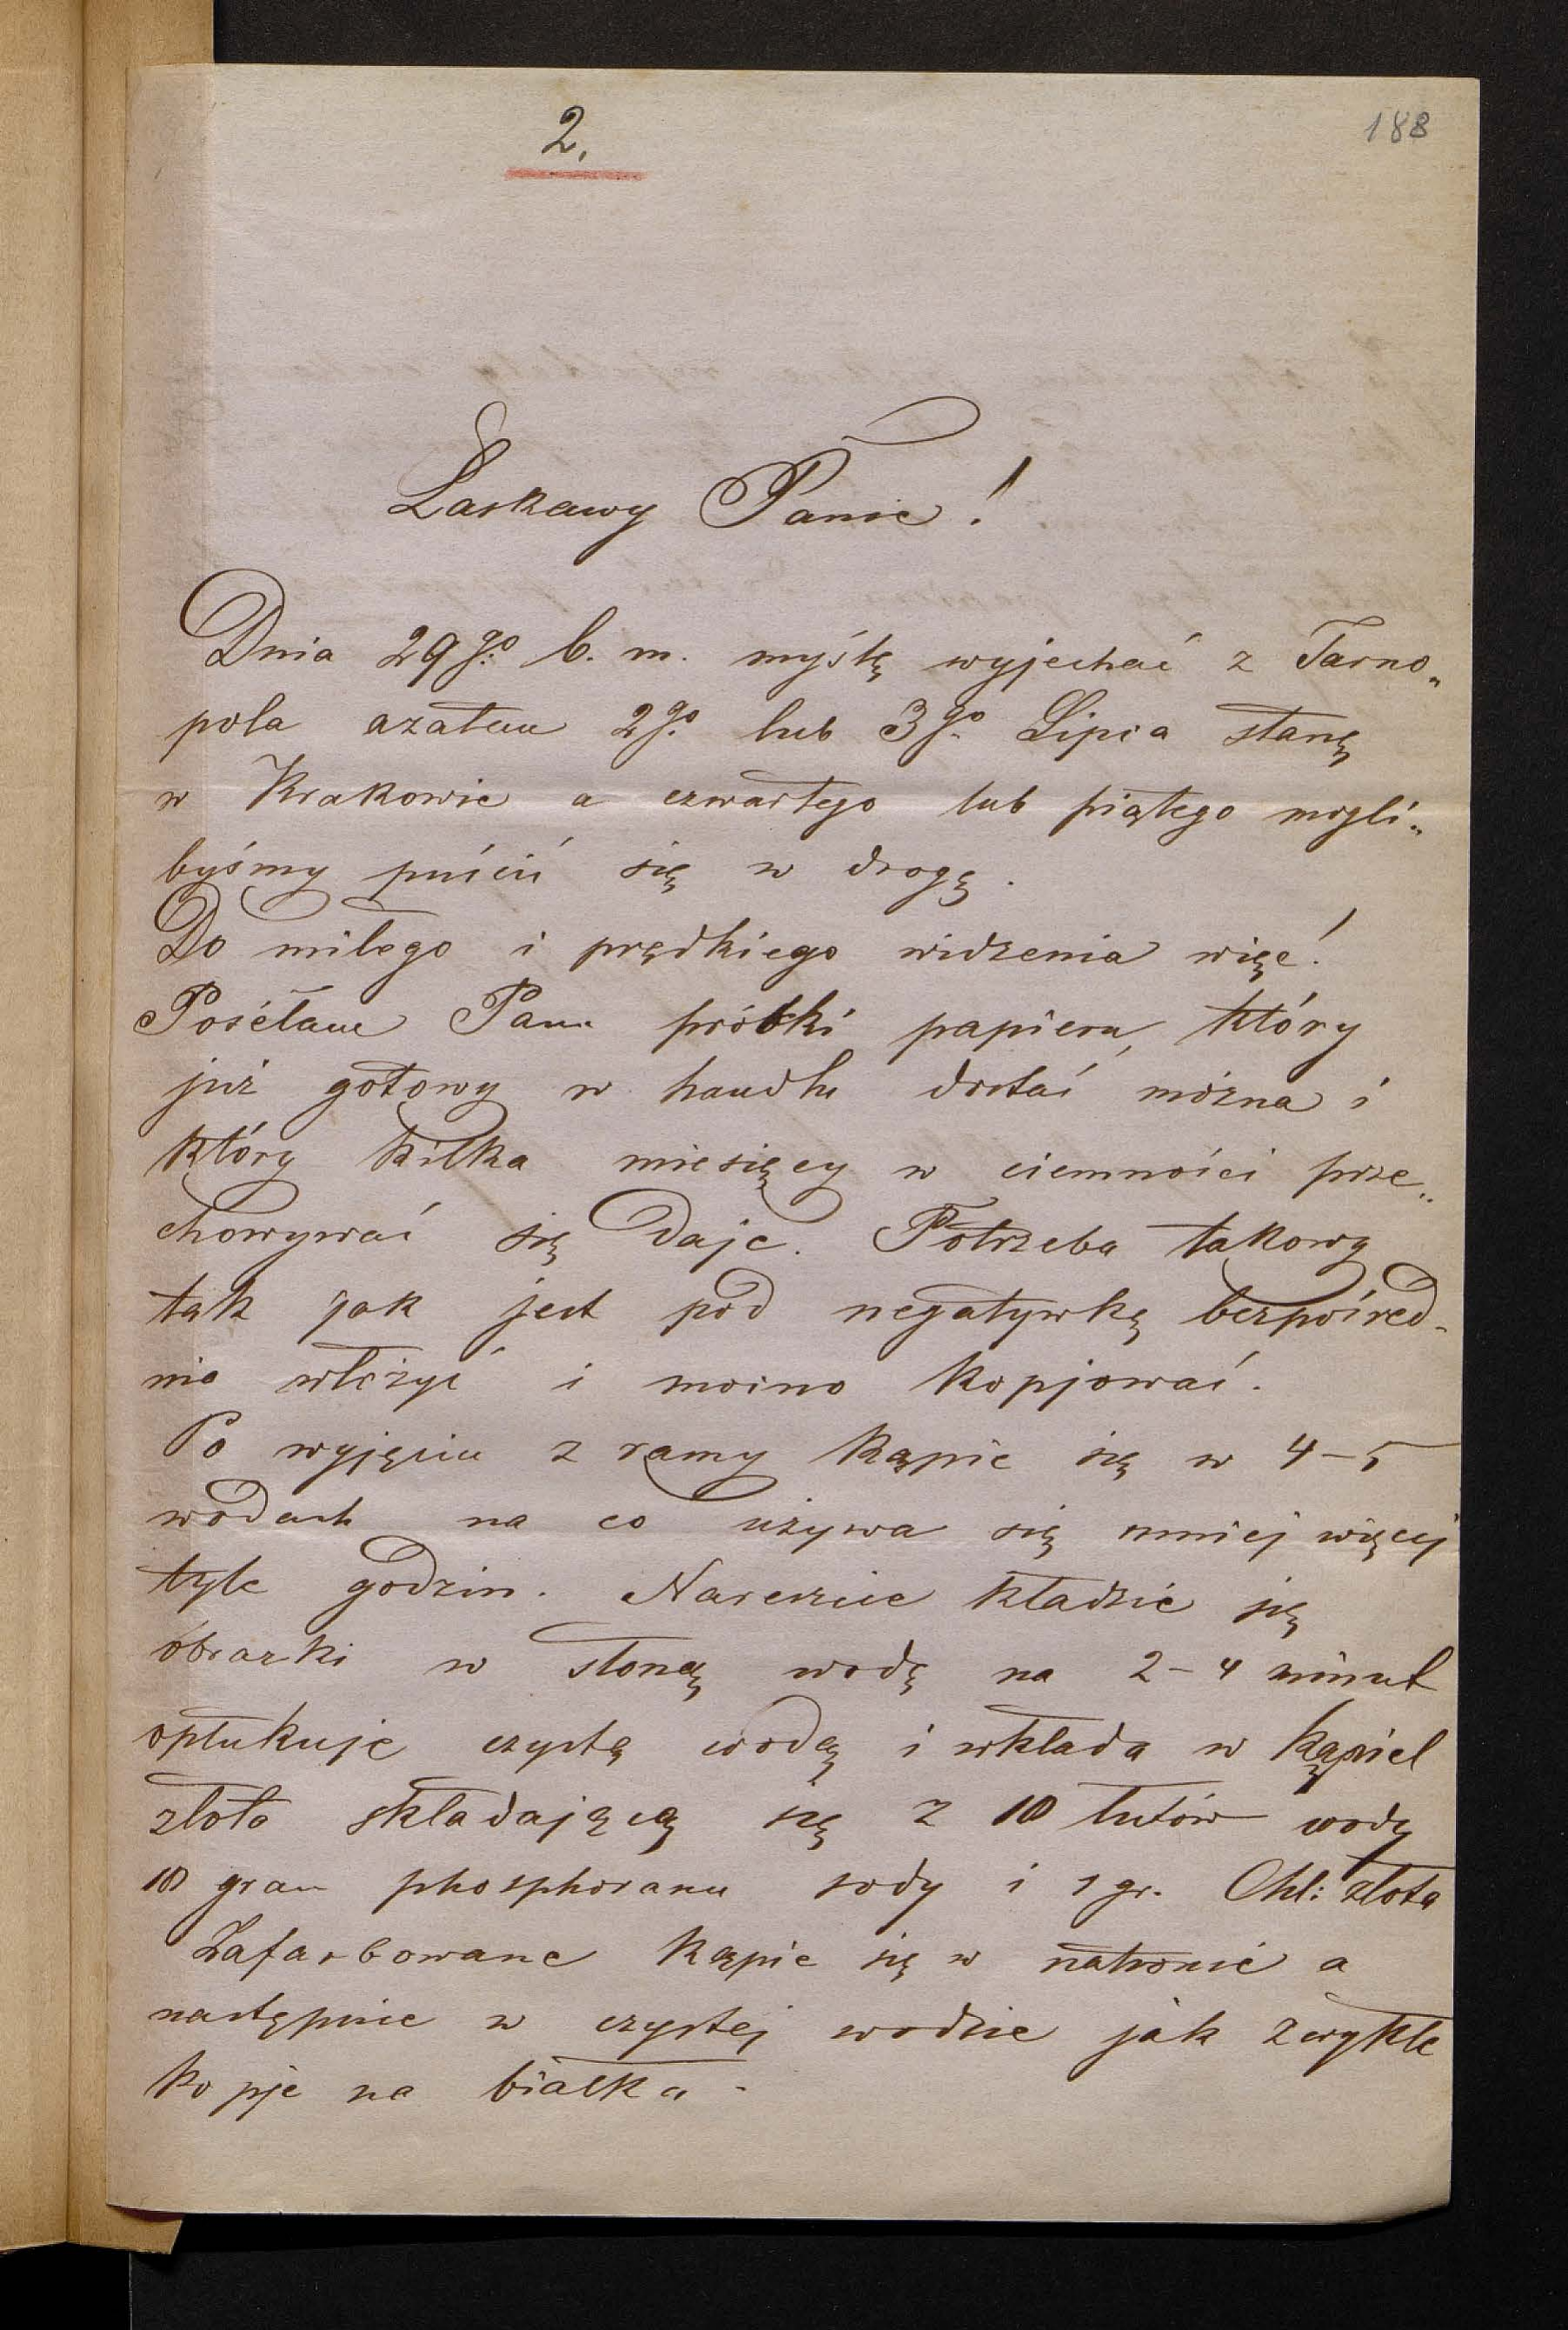 2.
188
Łaskawy Panie!
Dnia 29go b. m. myślę wyjechać z Tarno„
pola azatem 2go lub 3go Lipca stanę
w Krakowie a czwartego lub piątego mogli„
byśmy puścić się w drogę.
Do miłego i prędkiego widzenia więc!
Posełam Panu próbki papieru, który
już gotowy w handlu dostać można i
który kilka miesięcy w ciemności prze„
chowywać się daje. Potrzeba takowy
tak jak jest pod negatywkę bezpośred-
nio włożyć i mocno kopjować.
Po wyjęciu z ramy kąpie się w 4–5
wodach na co używa się mniej więcej
tyle godzin. Nareszcie kładzie się
obrazki w słoną wodę na 2–4 minut
opłukuje czystą wodą i wkłada w kąpiel
złoto składającą się z 10 łutów wody
10 gran phosphoranu sody i 1 gr. Chl: złota
Zafarbowane kąpie się w natronie a
następnie w czystej wodzie jak zwykle
kopje na białku.